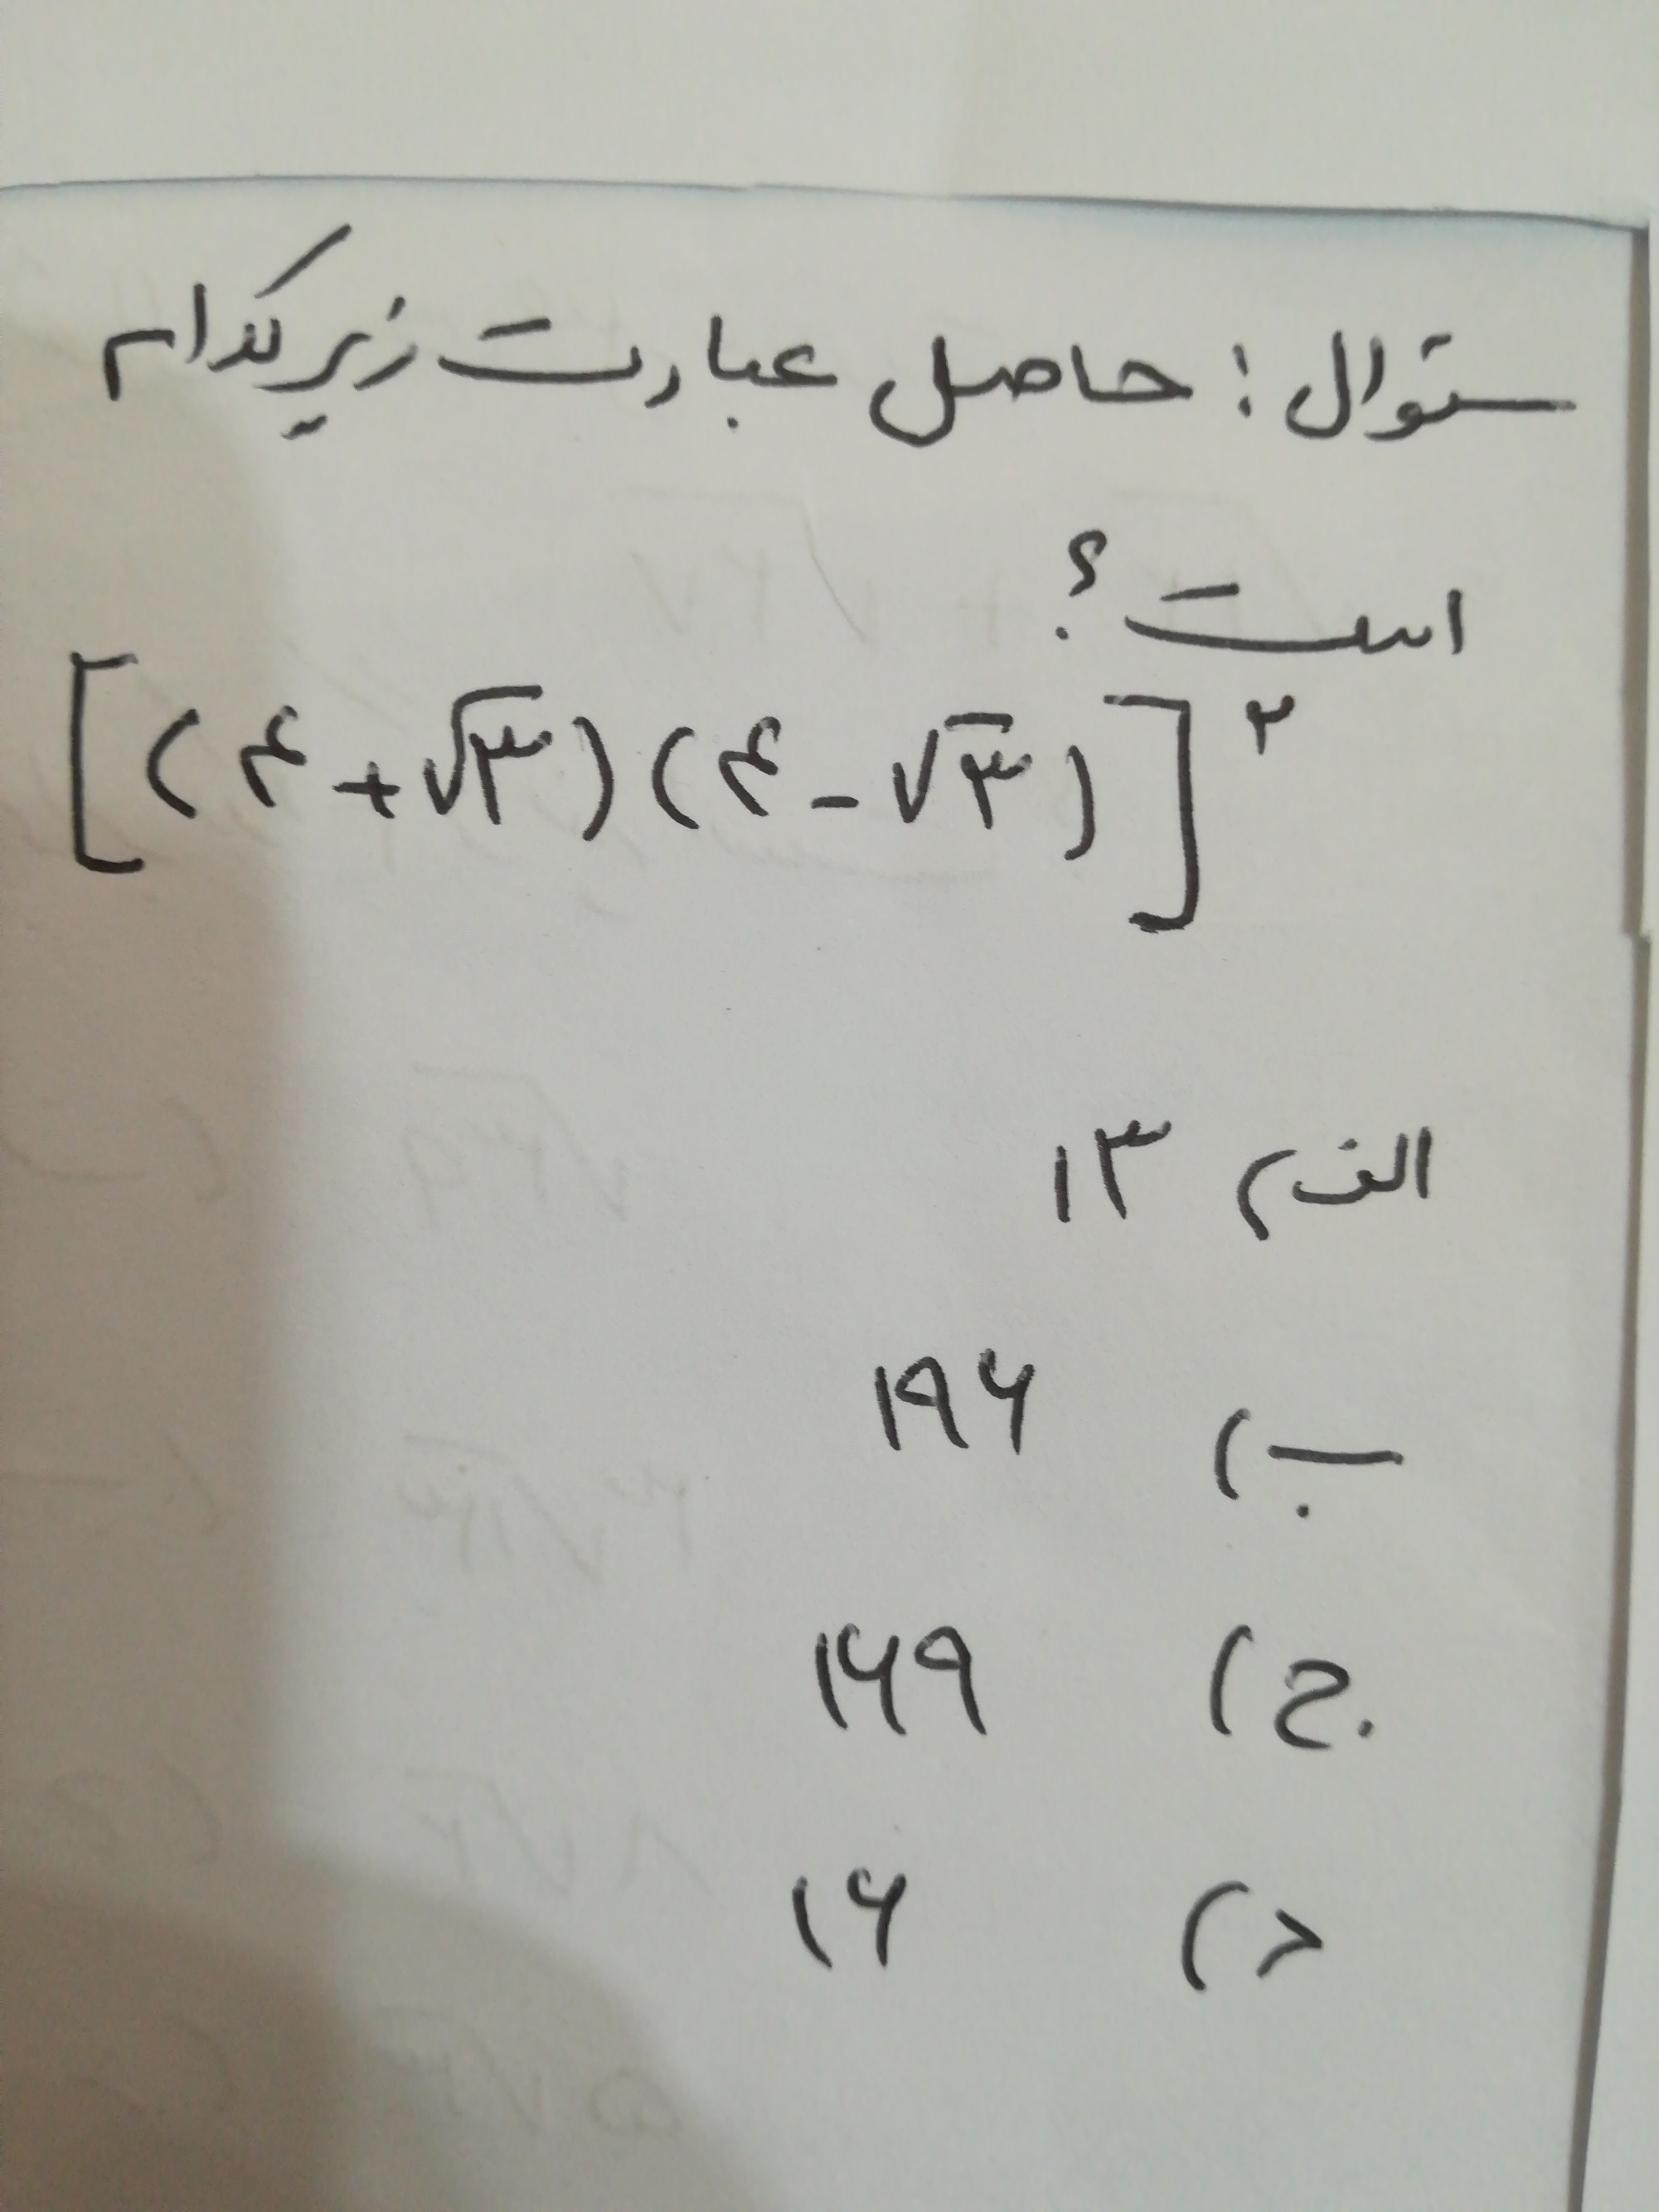 سئوال: حاصل عبارت زیر کدام
است؟
[(۴+√۳)(۴-√۳)]^۲
الف) ۱۳
ب) ۱۹۶
ج) ۱۶۹
د) ۱۶